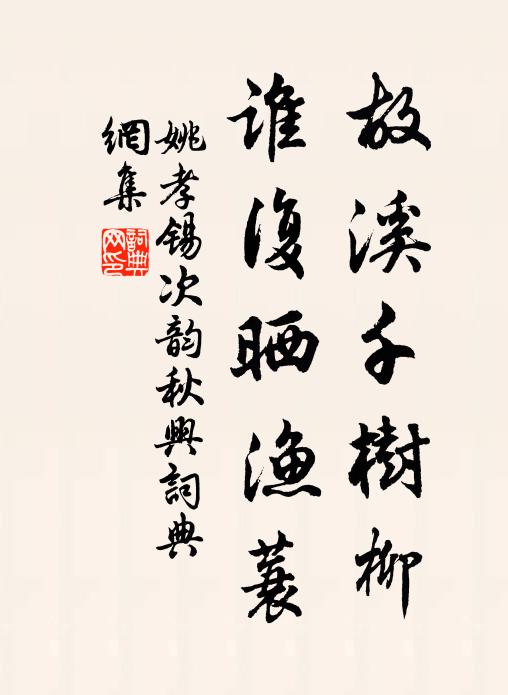 故溪千樹柳
谁復晒漁蓑
姚孝锡次韵秋興詞典
網集
詞典
网印